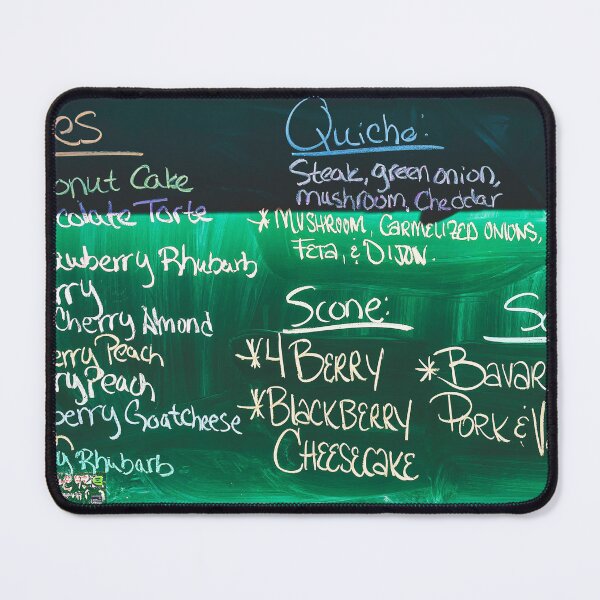 es
onut Cake
colate Torte
awberry Rhubarb
rry
Cherry Almond
erry Peach
ry Peach
berry Goatcheese
y Rhubarb
Quiche:
Steak, green onion,
mushroom, Cheddar
* MUSHROOM, CARMELIZED ONIONS,
FETA, & DIJON.
SCONE:
*4 BERRY
*BLACKBERRY
CHEESECAKE
* BAVAR
PORK & V